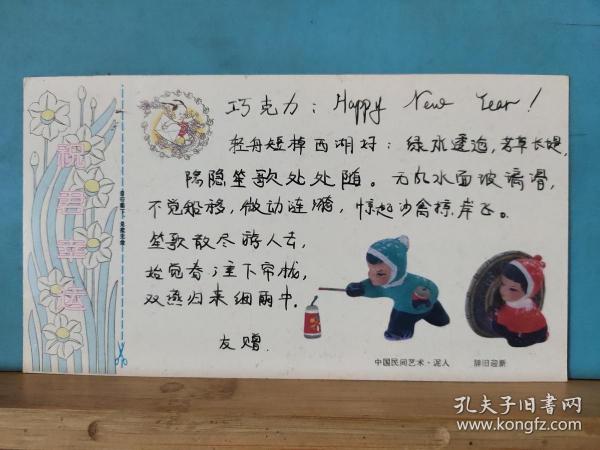 祝君幸运
巧克力：Happy New Year！
轻舟短棹西湖好：绿水逶迤，芳草长堤，
隐隐笙歌处处随。无风水面玻璃滑，
不觉船移，微动涟漪，惊起沙禽掠岸飞。
笙歌散尽游人去，
始觉春
下帘栊，
双燕归来细雨中。
友赠
中国民间艺术·泥人
辞旧迎新
孔夫子旧书网
www.kongfz.com